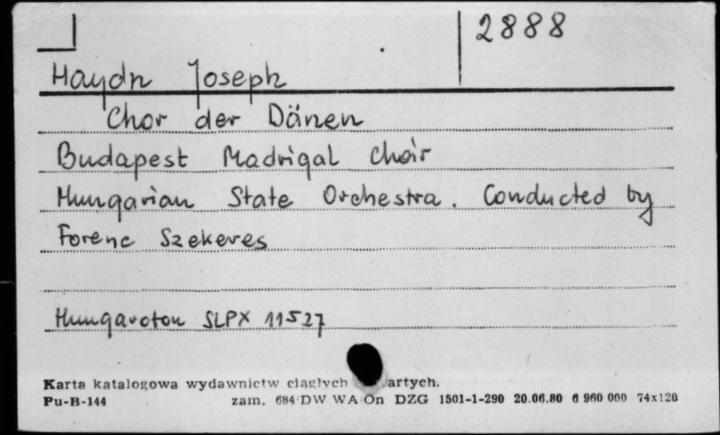 2888
Haydn Joseph
Chor der Dänen
Budapest Madrigal Choir
Hungarian State Orchestra. Conducted by
Ferenc Szekeres
Hungaroton SLPX 11527
Karta katalogowa wydawnictw ciągłych artych.
Pu-B-144 zam. 684 DW WA On DZG 1501-1-290 20.06.80 6 960 000 74x120